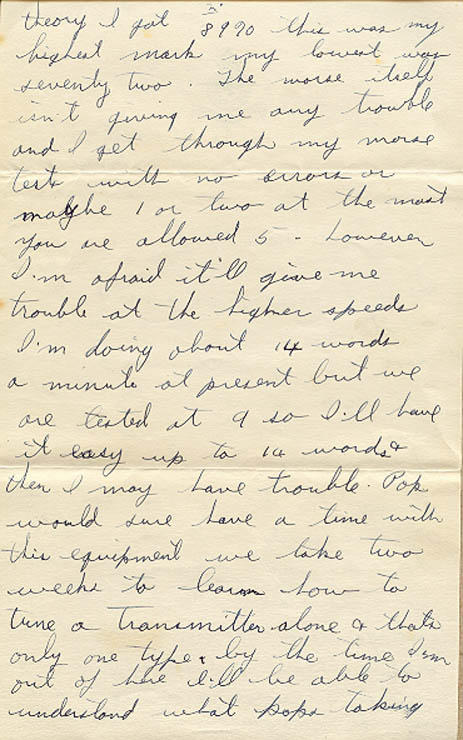 theory I got 89% this was my
highest mark my lowest was
seventy two. The morse itself
isn't giving me any trouble
and I get through my morse
tests with no errors or
maybe 1 or two at the most
you are allowed 5 - however
I'm afraid it'll give me
trouble at the higher speeds
I'm doing about 14 words
a minute at present but we
are tested at 9 so I'll have
it easy up to 14 words &
then I may have trouble. Pop
would sure have a time with
this equipment we take two
weeks to learn how to
tune a transmitter alone & that's
only one type & by the time I'm
out of here I'll be able to
understand what pops talking